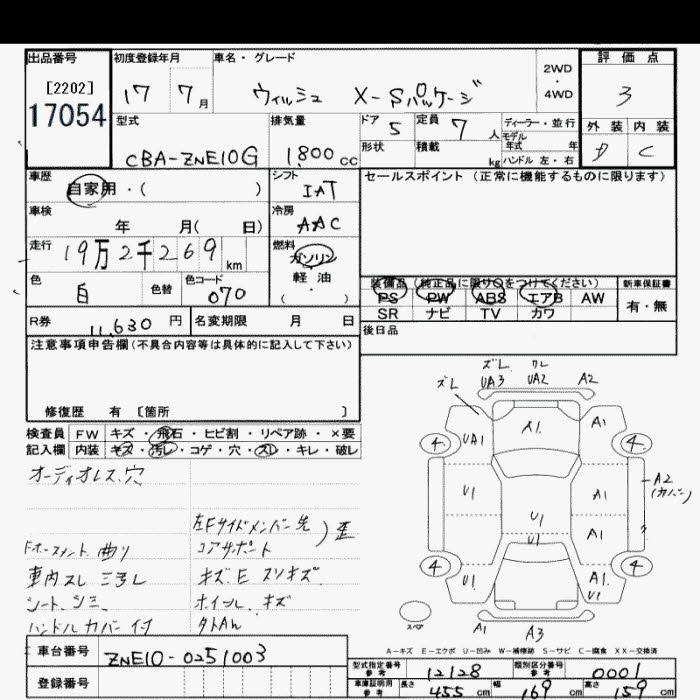 出品番号 初度登録年月 車名・グレード 評価点
[2202] 17 7月 ウィッシュ X-Sパッケージ 2WD・4WD 3
17054 型式 排気量 ドア 5 定員 7人 ディーラー・並行 外装 内装
モデル年式 年
CBA-ZNE10G 1,800cc 形状 積載 kg ハンドル 左・右 D C
車歴 自家用・( ) シフト IAT セールスポイント (正常に機能するものに限ります)
車検 年 月( 日) 冷房 AAC
走行 19万2千269km 燃料 ガソリン・軽油・( )
色 白 色替 色コード 070
装備品 (純正品に限り○をつけてください) 新車保証書
PS PW ABS エアB AW 有・無
SR ナビ TV カワ
R券 11,630円 名変期限 月 日 後日品
注意事項申告欄(不具合内容等は具体的に記入して下さい)
修復歴 有 [箇所 ]
検査員 FW キズ・飛石・ヒビ割・リペア跡・×要
記入欄 内装 キズ・汚レ・コゲ・穴・スレ・キレ・破レ
オーディオレス.穴
左Fサイドメンバー先
コアサポート 歪
曲り
キズ.E スリキズ
ホイール キズ
ハンドルカバー付
ズレ ズレ
UA3 UA2 A2
UA1 A1 A1
4 4
U1 A1 A2
(カバー)
U1 A1
U1
4 4
U1 A1.
U1
スペア A1 A3
A-キズ E-エクボ U-凹み W-補修跡 S-サビ C-腐食 XX-交換済
車台番号 ZNE10-0251003
登録番号
型式指定番号 参考 12128 類別区分番号 参考 0001
車庫証明用 参考 長さ 455cm 幅 169cm 高さ 159cm